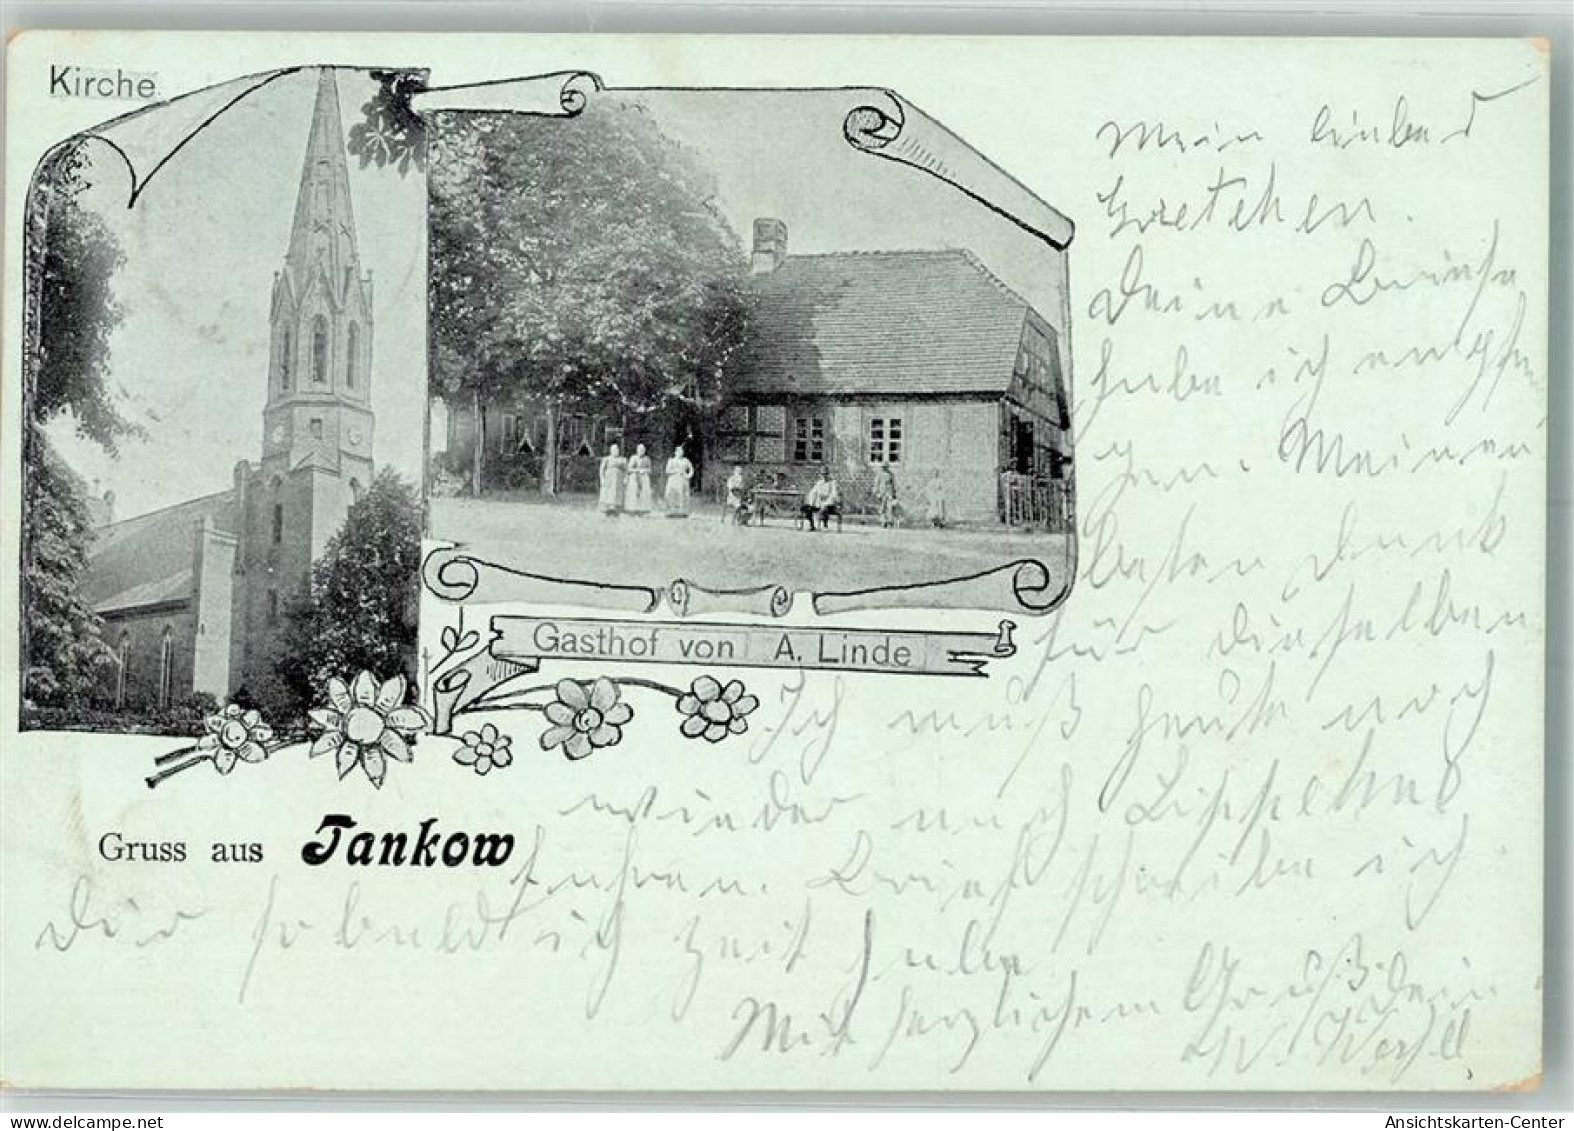 Kirche.
Gasthof von A. Linde
Gruss aus Tankow
Mein liebes
Gretchen.
Deine Briefe
habe ich empfan
gen. Meinen
besten Dank
für dieselben
Ich muß heute noch
wieder nach Lippehne
fahren. Brief schreibe ich
Dir sobald ich Zeit habe
Mit herzlichem Gruß Dein
W.
delcampe.net
Ansichtskarten-Center